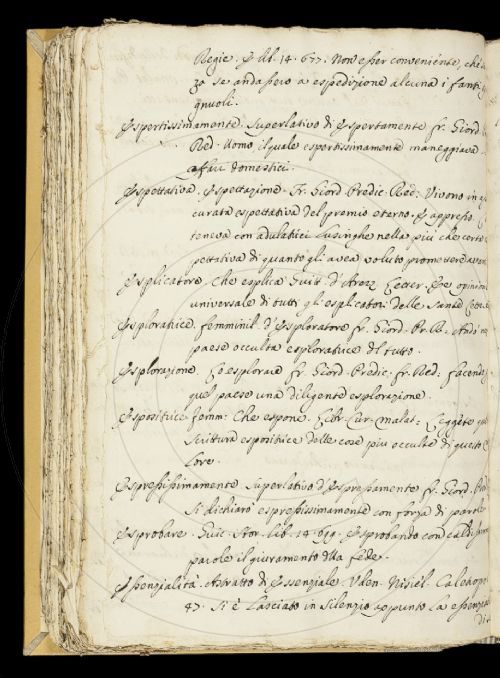 Regie. E lib. 14. 677. Non esser conveniente, che
za se andassero a espedizione alcuna i fanti
gnuoli.
Espertissimamente. Superlativo di Espertamente fr. Giord.
Red. Uomo, il quale espertissimamente maneggiava
affari domestici.
Espettativa. Espettazione. Fr. Giord. Predic. Red: Vivono in
curata espettativa del premio eterno. E appresso.
teneva con adulatrici lusinghe nella più che certa
pettativa di quanto gli avea voluto promettere
Esplicatore. Che esplica Guitt. d'Arezz. Letter. E e opinione
universale di tutti gli esplicatori delle Sante
Esploratrice. femminil. d'Esploratore fr. Giord. Pr. R. Andò
paese occulta esploratrice del tutto.
Esplorazione. Lo esplorare Fr. Giord. Predic. fr. Red: Facendo
quel paese una diligente esplorazione.
Espositrice femm: Che espone. Libr. Cur. malat: Leggete
Scrittura espositrice delle cose più occulte di questo
Lore.
Espressissimamente Superlativo d'Espressamente fr. Giord. Pred.
Si dichiarò espressissimamente con forza di parole
Esprobare. Guic. Stor. lib. 14. 699. Esprobando con calde
parole il giuramento della fede.
Essenzialità. Astratto di Essenziale. Valen. Nisiel.
47. Si è lasciato in silenzio appunto la essenzia